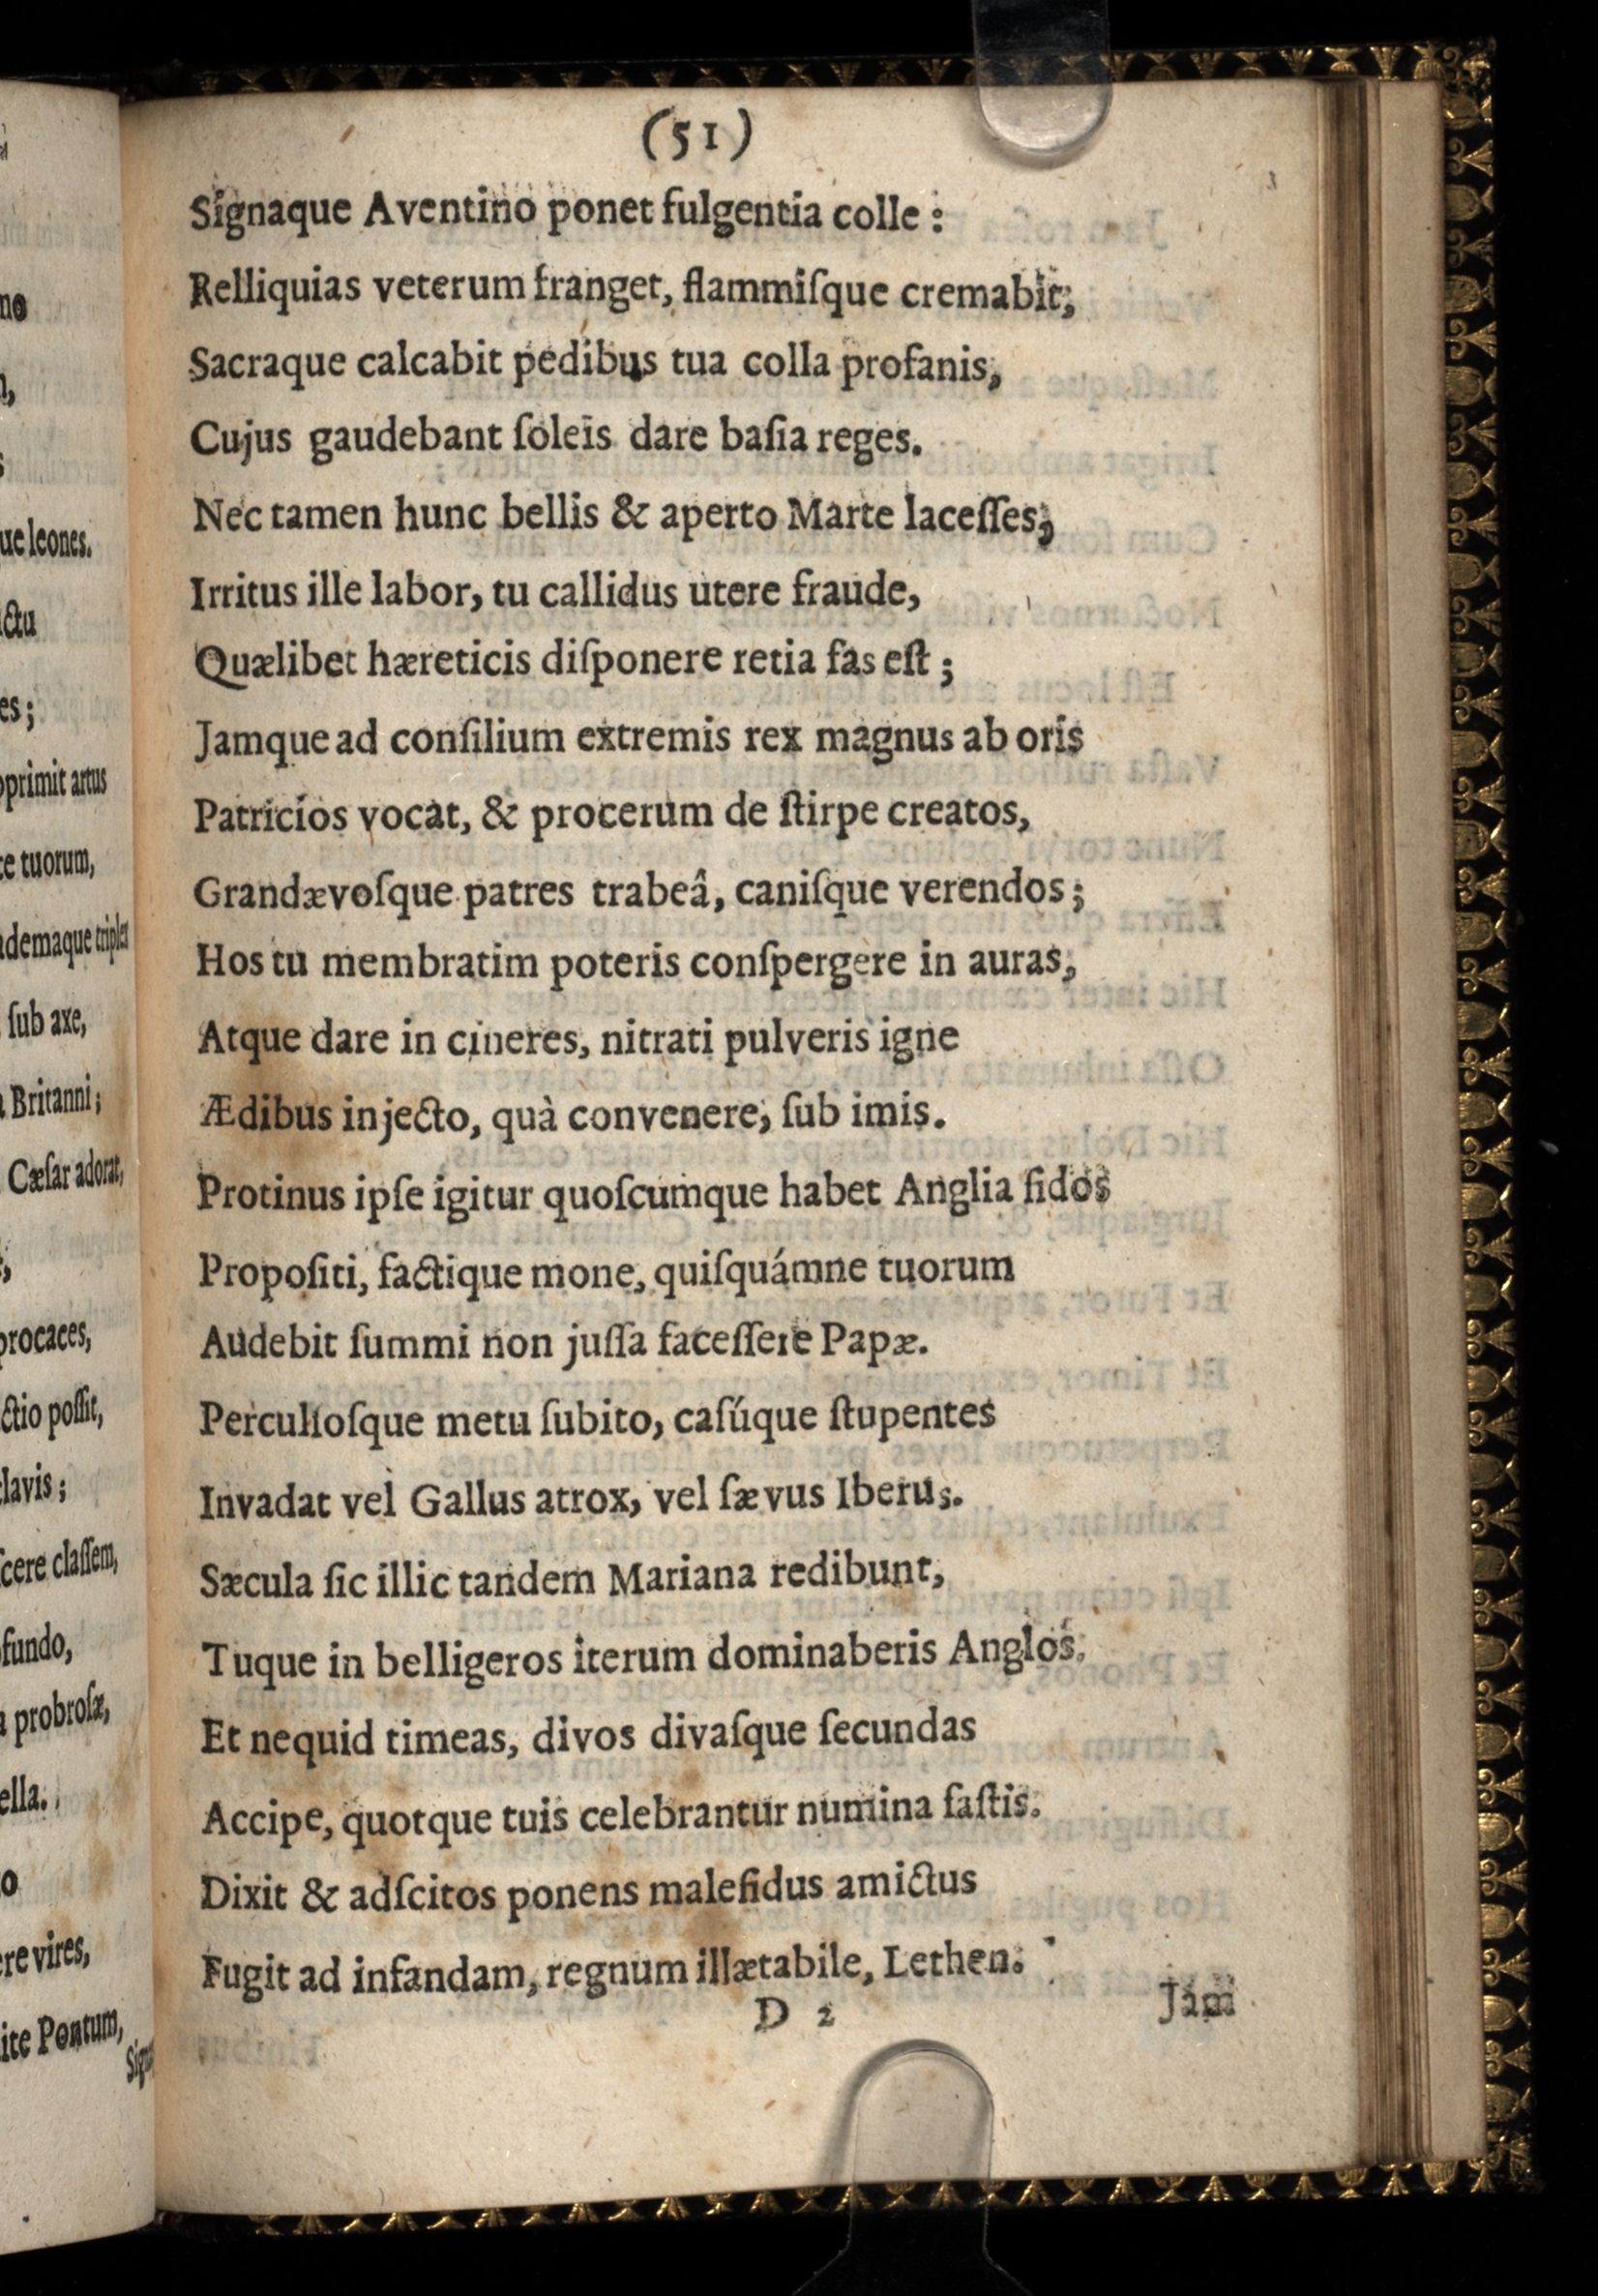 (51)
Signaque Aventino ponet fulgentia colle :
Relliquias veterum franget, flammiſque cremabit;
Sacraque calcabit pedibus tua colla profanis,
Cujus gaudebant ſoleis dare baſia reges.
Nec tamen hunc bellis & aperto Marte laceſſes;
Irritus ille labor, tu callidus utere fraude,
Quælibet hæreticis diſponere retia fas eſt ;
Jamque ad conſilium extremis rex magnus ab oris
Patricios vocat, & procerum de ſtirpe creatos,
Grandævoſque patres trabeâ, caniſque verendos;
Hos tu membratim poteris conſpergere in auras,
Atque dare in cineres, nitrati pulveris igne
Ædibus injecto, quà convenere, ſub imis.
Protinus ipſe igitur quoſcumque habet Anglia fidos
Propoſiti, factique mone, quiſquámne tuorum
Audebit ſummi non juſſa faceſſere Papæ.
Perculſoſque metu ſubito, caſúque ſtupentes
Invadat vel Gallus atrox, vel ſævus Iberus.
Sæcula ſic illic tandem Mariana redibunt,
Tuque in belligeros iterum dominaberis Anglos.
Et nequid timeas, divos divaſque ſecundas
Accipe, quotque tuis celebrantur numina faſtis.
Dixit & adſcitos ponens malefidus amictus
Fugit ad infandam, regnum illætabile, Lethen.
D 2
Jam
ue leones.
ctu
es;
pprimit artus
ce tuorum,
ademaque triplex
ſub axe,
Britanni;
Cæſar adorat,
procaces,
ctio poſſit,
clavis;
ſcere claſſem,
fundo,
probroſæ,
ella.
re vires,
ite Pontum,